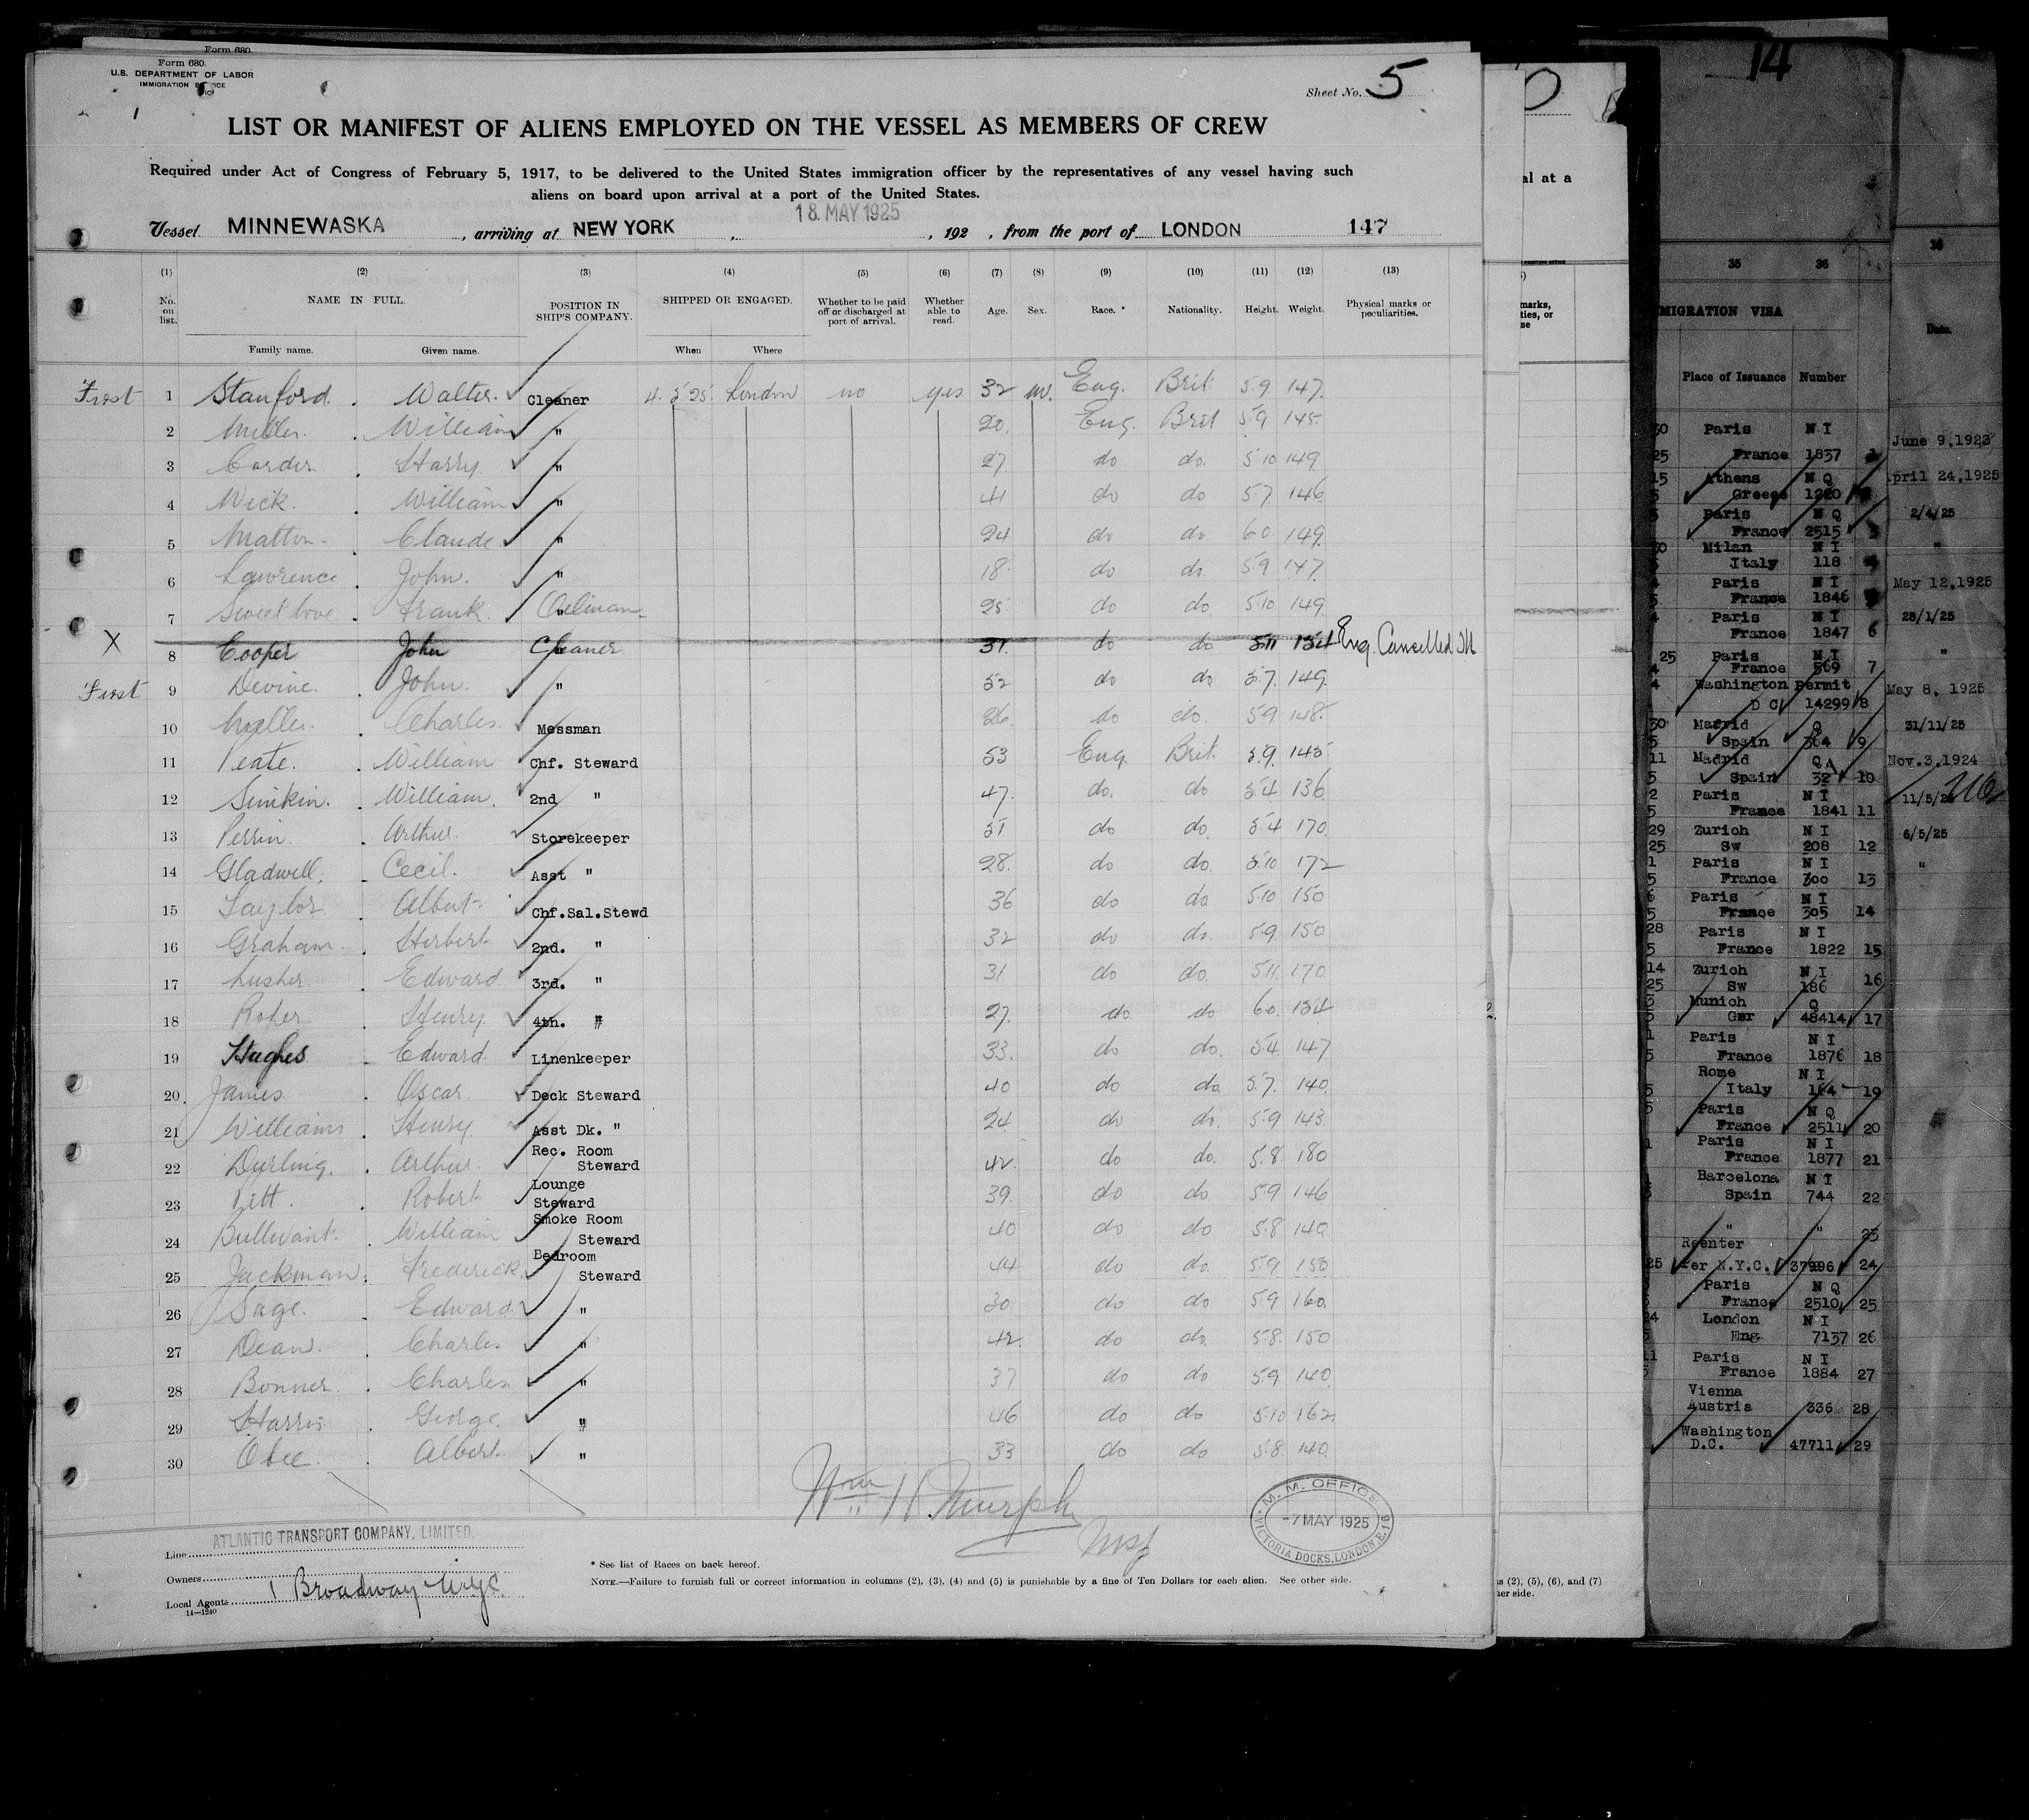 Form 680.
Form 680.
U.S. DEPARTMENT OF LABOR
IMMIGRATION SERVICE
Sheet No. 5
LIST OR MANIFEST OF ALIENS EMPLOYED ON THE VESSEL AS MEMBERS OF CREW
Required under Act of Congress of February 5, 1917, to be delivered to the United States immigration officer by the representatives of any vessel having such
aliens on board upon arrival at a port of the United States.
18 MAY 1925
Vessel MINNEWASKA, arriving at NEW YORK, 192, from the port of LONDON 147
(1) (2) (3) (4) (5) (6) (7) (8) (9) (10) (11) (12) (13)
No. on list. NAME IN FULL. POSITION IN SHIP'S COMPANY. SHIPPED OR ENGAGED. Whether to be paid off or discharged at port of arrival. Whether able to read. Age. Sex. Race.* Nationality. Height. Weight. Physical marks or peculiarities.
Family name. Given name. When Where
First 1 Stanford. Walter. Cleaner 4.5.25 London no yes 32 m. Eng. Brit. 5.9 147.
2 Miller. William " 20. Eng. Brit 5.9 145.
3 Carder Harry. " 27. do do. 5.10 149.
4 Weck. William " 41 do do 5.7 146
5 Matton. Claude " 24 do do 6.0 149.
6 Lawrence. John. " 18. do do. 5.9 147.
7 Sweetlove. Frank. 25 do do. 5.10 149.
X 8 Cooper John Cleaner 31. do do 5.11 154 Eng. Cancelled
First 9 Devine. John. " 52 do do 5.7. 149.
10 Charles. Messman 26. do do. 5.9. 148.
11 Peate. William Chf. Steward 53 Eng. Brit. 5.9. 145
12 Simkin. William. 2nd " 47. do. do 5.4 136
13 Perrin. Arthur. Storekeeper 51 do do. 5.4 170.
14 Gladwell. Cecil. Asst " 28. do do. 5.10 172
15 Taylor Albert Chf.Sal.Stewd 36 do do 5.10 150
16 Graham. Herbert 2nd. " 32 do do. 5.9 150
17 Lusher Edward 3rd. " 31 do do. 5.11. 170
18 Roper Henry. 4th. " 27. do do 6.0. 154
19 Hughes Edward. Linenkeeper 33. do do. 5.4 147
20. James Oscar Deck Steward 40 do do. 5.7. 140.
21 Williams Henry. Asst Dk. " 24. do do. 5.9 143.
22 Durling. Arthur. Rec. Room Steward 42. do do. 5.8 180
23 Pett. Robert Lounge Steward 39. do do 5.9 146
24 Bullivant. William Smoke Room Steward 40 do do 5.8 140
25 Jackman. Frederick. Bedroom Steward 44 do do. 5.9 150
26 Sage. Edward. " 30 do do 5.9 160.
27 Dean. Charles " 42. do do. 5.8. 150
28 Bonner. Charles. " 37 do do 5.9. 140.
29 Harris George. " 46 do do 5.10 162.
30 Obee. Albert. " 33 do do 5.8 140.
Wm H. Murphy
M. M. OFFICE
-7 MAY 1925
VICTORIA DOCKS, LONDON, E.16
Line ATLANTIC TRANSPORT COMPANY, LIMITED.
Owners
Local Agents 1 Broadway N.Y.C.
14—1240
* See list of Races on back hereof.
NOTE.—Failure to furnish full or correct information in columns (2), (3), (4) and (5) is punishable by a fine of Ten Dollars for each alien. See other side.
al at a
marks,
ties, or
se
s (2), (5), (6), and (7)
er side.
14
35 36
MIGRATION VISA
Place of Issuance Number
30 Paris N I
25 France 1837
15 Athens N Q
5 Greece 1220
5 Paris N Q
France 2515
30 Milan N I
Italy 118
4 Paris N I
5 France 1846
4 Paris N I
France 1847 6
25 Paris N I
4 France 569 7
4 Washington Permit
D C 14299 8
30 Madrid Q
5 Spain 364 9
11 Madrid Q
5 Spain 32 10
2 Paris N I
5 France 1841 11
29 Zurich N I
25 Sw 208 12
1 Paris N I
5 France 300 13
6 Paris N I
5 France 305 14
28 Paris N I
5 France 1822 15
14 Zurich N I
25 Sw 186 16
3 Munich Q
5 Ger 48414 17
1 Paris N I
5 France 1876 18
Rome N I
5 Italy 184 19
5 Paris N Q
France 2511 20
1 Paris N I
France 1877 21
Barcelona N I
Spain 744 22
" " 23
Reenter
25 Per N.Y.C. 37996 24
Paris N Q
France 2510 25
24 London N I
Eng. 7137 26
11 Paris N I
5 France 1884 27
Vienna
Austria 336 28
Washington
D.C. 47711 29
36
Date.
June 9, 1923
April 24, 1925
2/4/25
"
May 12, 1925
28/1/25
"
May 8, 1925
31/11/25
Nov. 3, 1924
11/5/25
6/5/25
"